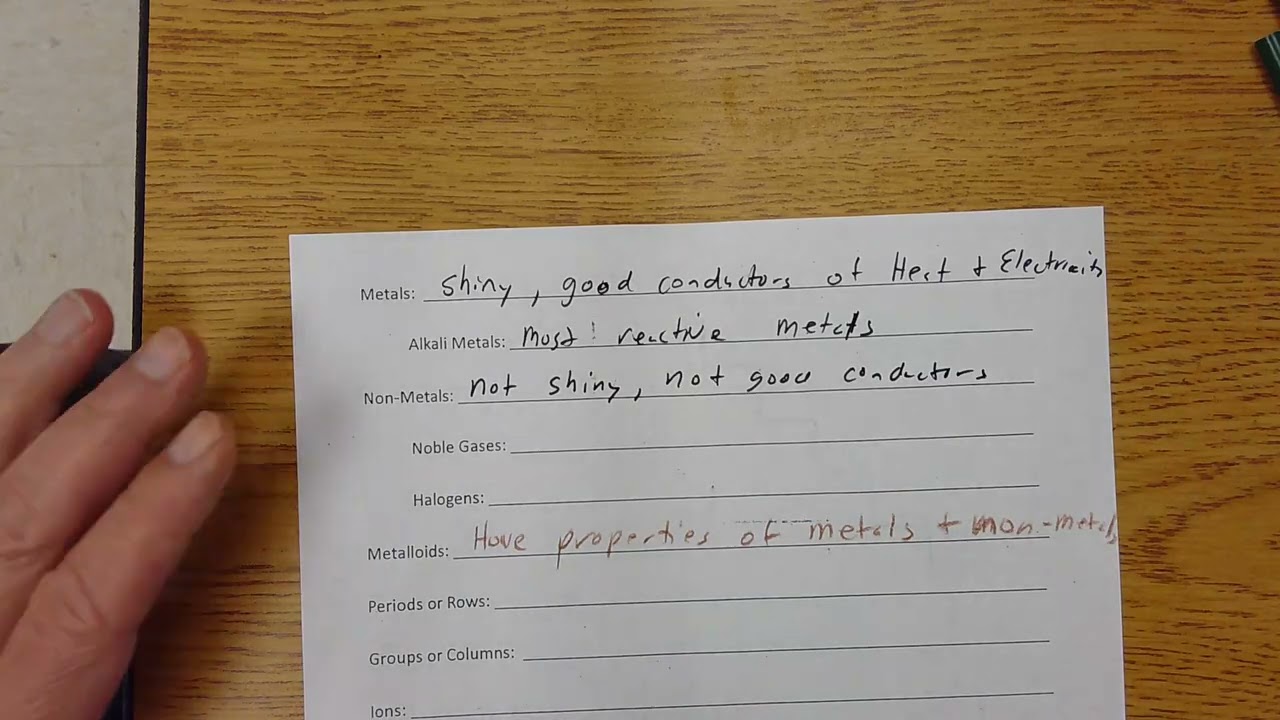 Metals: shiny, good conductors of Heat + Electricity
Alkali Metals: most reactive metals
Non-Metals: not shiny, not good conductors
Noble Gases:
Halogens:
Metalloids: Have properties of metals + non-metals
Periods or Rows:
Groups or Columns:
Ions: